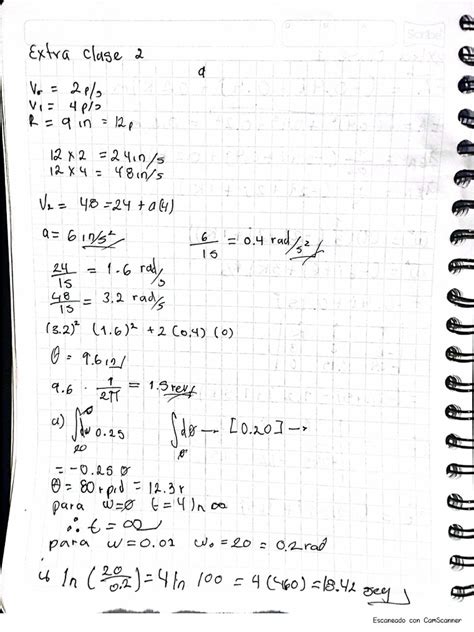 Scribe
Extra clase 2
V₀ = 2p/s
V₁ = 4p/s
R = 9 in = 12p
12 x 2 = 24in/s
12 x 4 = 48in/s
V₂ = 48 = 24 + a(4)
a = 6 in/s²    6/15 = 0.4 rad/s²
24/15 = 1.6 rad/s
48/15 = 3.2 rad/s
(3.2)² (1.6)² + 2 (0.4) (0)
θ = 9.6 in
9.6 · 1/2π = 1.5 rev
a) ∫ dw 0.25    ∫ dθ — [0.20] —
20
= -0.25 θ
θ = 80 rpid = 12.3 r
para w=∅ t=4 ln ∞
∴ t = ∞
para w=0.02 w₀ = 20 = 0.2 rad
ln (20/0.2) = 4 ln 100 = 4 (460) = 18.42 seg
Escaneado con CamScanner